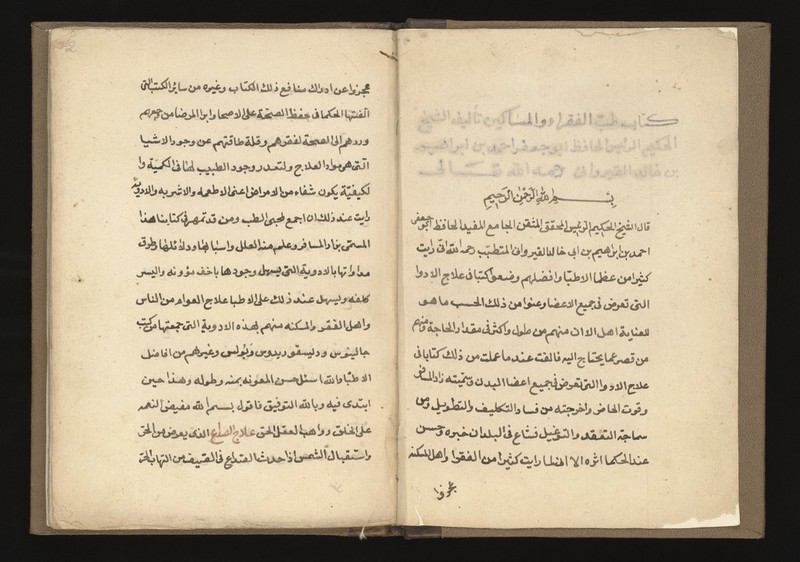 كتاب طب الفقراء والمساكين تأليف الشيخ
الحكيم الرايس الحافظ ابو جعفر احمد بن ابراهيم
بن خالد القيرواني رحمه الله تعالى
بسم الله الرحمن الرحيم
قال الشيخ الحكيم الرئيس المحقق المتقن الجامع المفيد الحافظ ابو جعفر
احمد بن ابراهيم بن ابى خالد القيروانى المتطبب رحمه الله انى رايت
كثيرا من عظما الاطبا وافضلهم وضعوا كتبا فى علاج الادوا
التى تعرض فى جميع الاعضا وعنوا من ذلك الحسب ما هو
للعناية اهل الا ان منهم من طول واكثر فى مقدار الحاجة ومنهم
من قصر عما يحتاج اليه فالفت عند ما عملت من ذلك كتابا فى
علاج الادوا التى تعرض فى جميع اعضا البدن وسميته زاد المسافر
وقوت الحاضر واخرجته من فساد التكليف والتطويل ومن
سماجة التعقد والتوغيل فشاع فى البلدان خبره وحسن
عند الحكما اثره الا انى لما رايت كثيرا من الفقرا واهل المسكنه
عجزوا
2
عجزوا عن ادراك منافع ذلك الكتاب وغيره من ساير الكتب التى
الفتها الحكما فى حفظ الصحة على الاصحا وابرا المرضا من
وردهم الى الصحة لفقرهم وقلة طاقتهم عن وجود الاشيا
التى هى مواد العلاج ولتعذر وجود الطبيب لهنا فى الكمية وا
لكيفية يكون شفاء من الامراض اعنى الاطعمه والاشربه والادوية
رايت عند ذلك ان اجمع لمحبى الطب ومن قد تمهر فى كتابنا هذا
المسمى بزاد المسافر وعلم منه العلل واسبابها ودلائلها وطرق
مداواتها بالادوية التى يسهل وجودها باخف مؤونه وايسر
كلفه وليسهل عند ذلك على الاطبا علاج العوام من الناس
واهل الفقر والمسكنه منهم بهذه الادوية التى جمعتها من كتب
جالينوس ودليسقوريدوس وبولس وغيرهم من افاضل
الاطبا والله اسئل حسن المعونه بمنه وطوله وهذا حين
ابتدى فيه وبالله التوفيق فاقول بسم الله مفيض النعمه
على الخلق وواهب العقل الحق علاج الصداع الذى يعرض من الحر
واستقبال الشمس اذا حدث الصداع فى الصيف من التهاب الحر